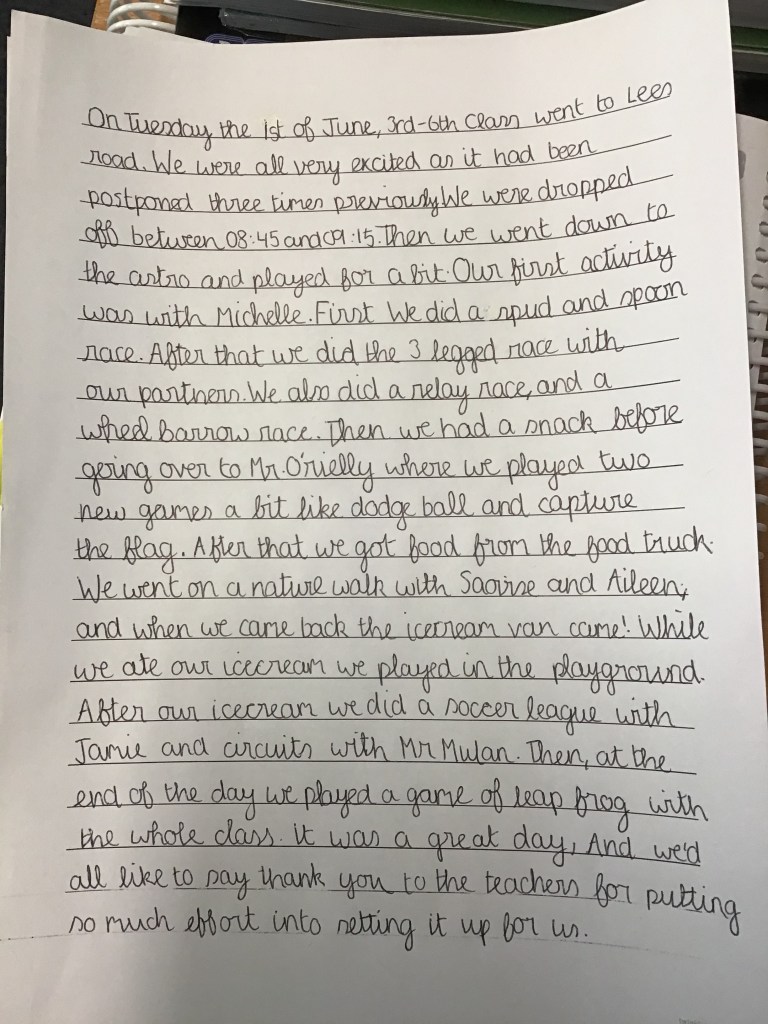 On Tuesday the 1st of June, 3rd-6th Class went to Lees
road. We were all very excited as it had been
postponed three times previously We were dropped
off between 08:45 and 09:15. Then we went down to
the astro and played for a bit. Our first activity
was with Michelle. First We did a spud and spoon
race. After that we did the 3 legged race with
our partners. We also did a relay race, and a
wheel barrow race. Then we had a snack before
going over to Mr. O'rielly where we played two
new games a bit like dodge ball and capture
the flag. After that we got food from the food truck.
We went on a nature walk with Saoirse and Aileen,
and when we came back the icecream van came! While
we ate our icecream we played in the playground.
After our icecream we did a soccer league with
Jamie and circuits with Mr Mulan. Then, at the
end of the day we played a game of leap frog with
the whole class. it was a great day, And we'd
all like to say thank you to the teachers for putting
so much effort into setting it up for us.